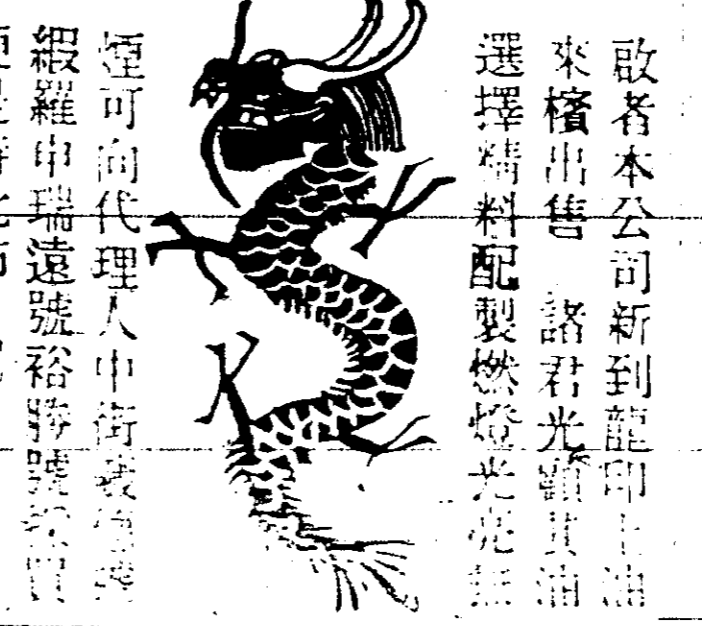 啟者本公司新到龍印上油
來檳出售　諸君光顧其油
選擇精料配製燃燈光亮無
煙可向代理人中街
緞羅申瑞遠號裕勝號